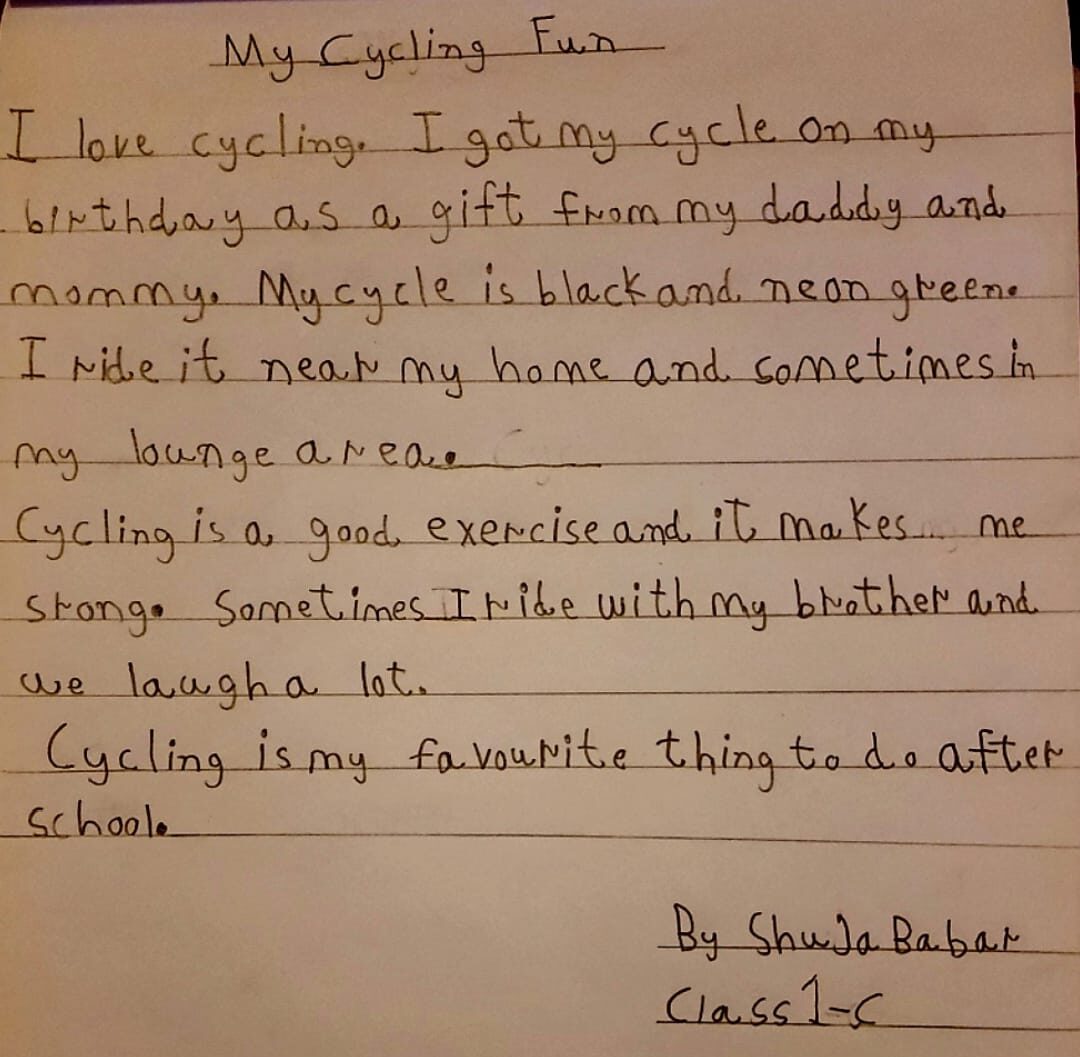 My Cycling Fun
I love cycling. I got my cycle on my
birthday as a gift from my daddy and
mommy. My cycle is black and neon green.
I ride it near my home and sometimes in
my lounge area.
Cycling is a good exercise and it makes me
strong. Sometimes I ride with my brother and
we laugh a lot.
Cycling is my favourite thing to do after
school.
By Shuja Babar
Class 1-C